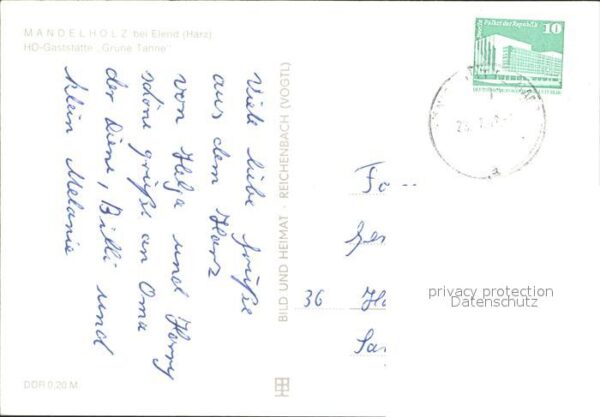 MANDELHOLZ bei Elend (Harz)
HO-Gaststätte „Grüne Tanne"
Viele liebe Grüße
aus dem Harz
von Helga und Harry
schöne grüße an Oma
der Diene, Billi und
klein Melanie
BILD UND HEIMAT · REICHENBACH (VOGTL)
DDR 0,20 M
Palast der Republik
10
Fa
Ger
36 Ha
Sa
privacy protection
Datenschutz